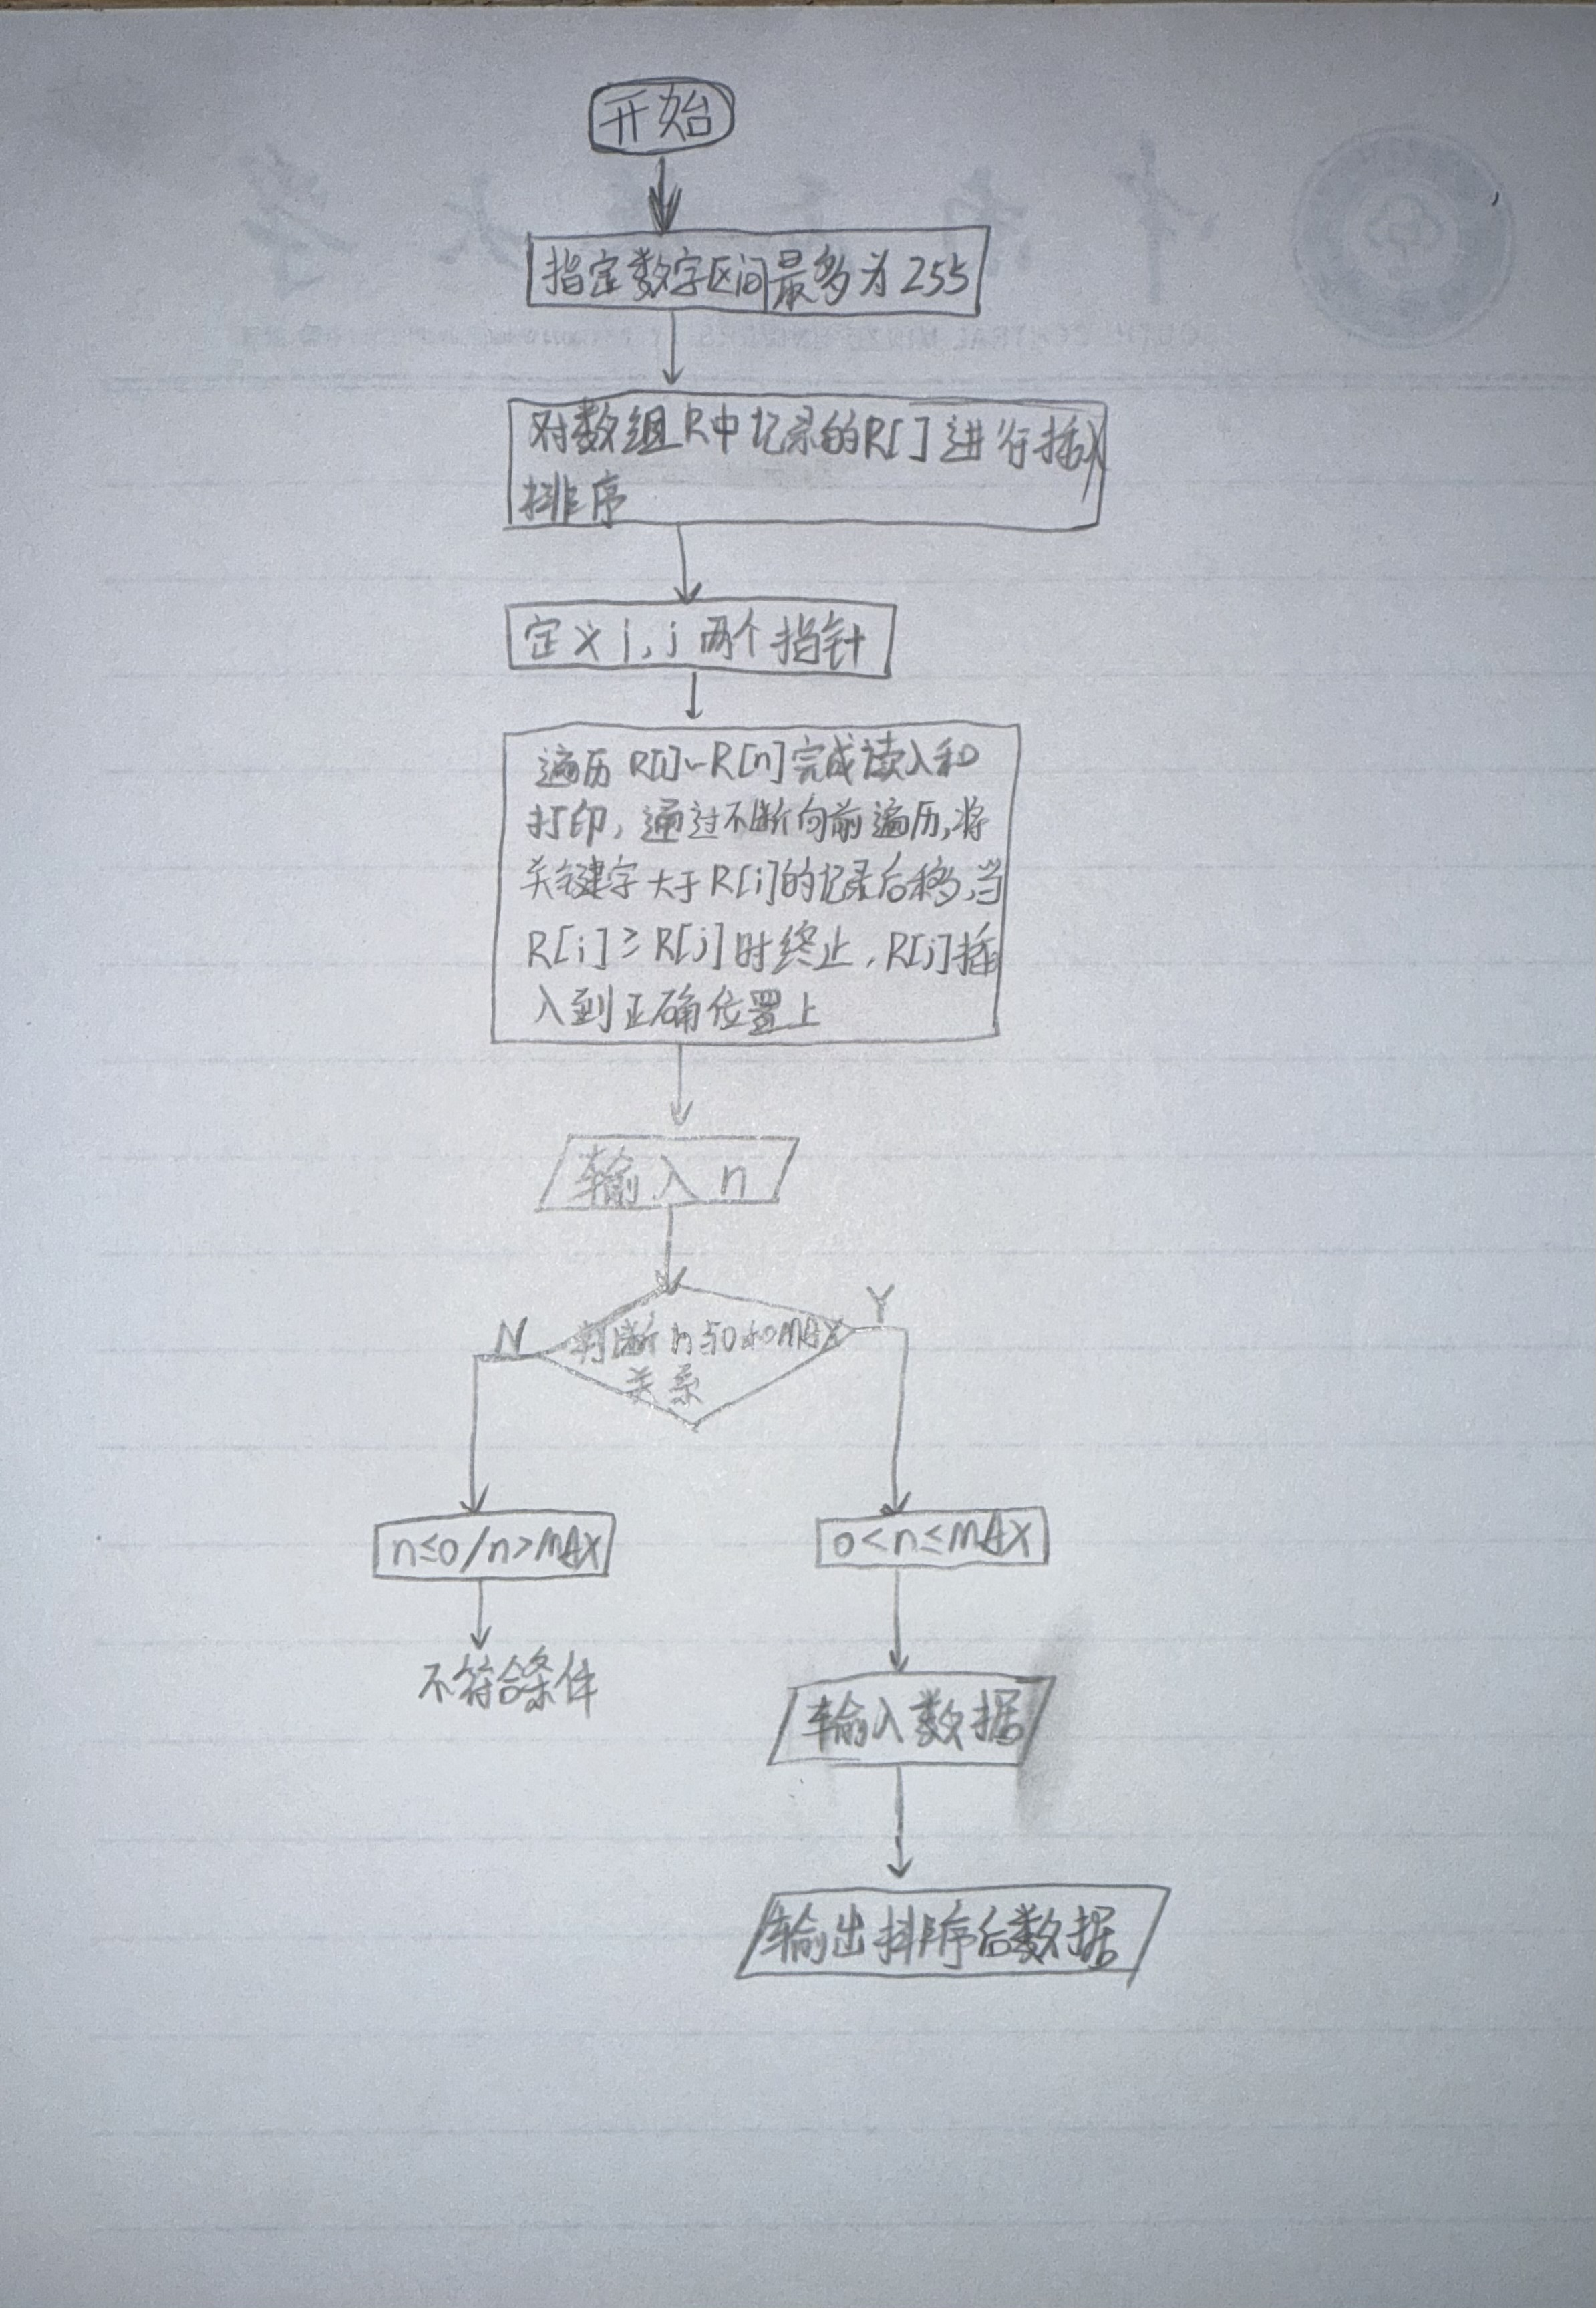 开始
指定数字区间最多为255
对数组R中记录的R[]进行插入
排序
定义i,j两个指针
遍历R[i]~R[n]完成读入和
打印,通过不断向前遍历,将
关键字大于R[i]的记录后移,当
R[i]≥R[j]时终止,R[j]插
入到正确位置上
输入n
N
Y
判断n与0和MAX
关系
n≤0/n>MAX
0<n≤MAX
不符合条件
输入数据
输出排序后数据